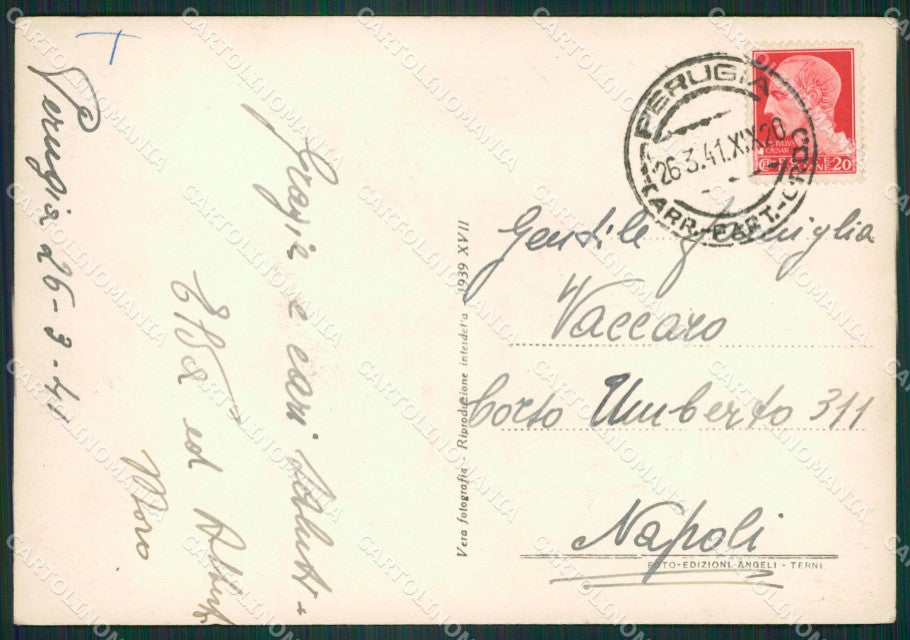 Perugia 26-3-41
Grazie e cari saluti
Elsa ed
Moro
Vera fotografia - Riproduzione interdetta - 1939 XVII
PERUGIA
26.3.41.XIX 20
CENT. 20
Gentile famiglia
Vaccaro
Corso Umberto 311
Napoli
FOTO-EDIZIONI ANGELI - TERNI
CARTOLINOMANIA